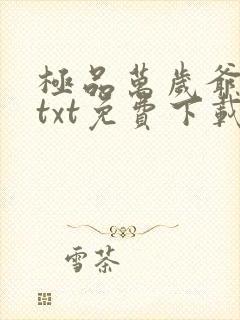 極品萬歲爺
txt免費下載
雪茶